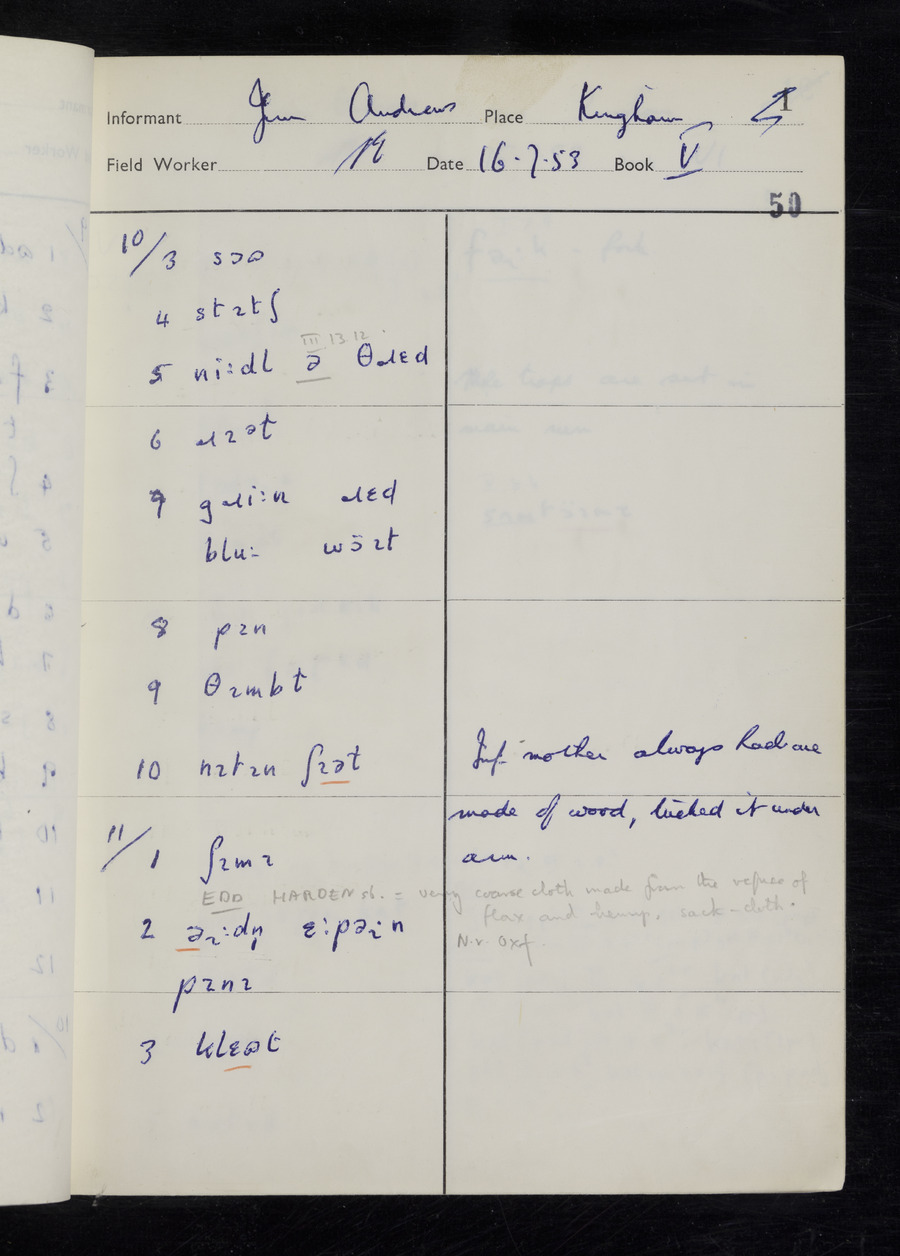 Informant Jim Andrews Place Kingham 1
Field Worker Date 16.7.53 Book V
50
10/3 sɔə
4 stɪtʃ
III 13.12.
5 ni:dl ə θɹɛd
6 ɹɪət
7 gɹi:n ɹɛd
blu: wɔ̈ɪt
8 pɪn
9 θɪmbt
10 nɪtɪn ʃɪət
Inf. mother always had one
made of wood, tucked it under
arm.
11/1 ʃɪmɪ
EDD HARDEN sb. = very coarse cloth made from the refuse of
flax and hemp, sack-cloth.
N.v. Oxf.
2 əɪ:dn̩ ɛ:pəɪn
pɪnɪ
3 klɛət